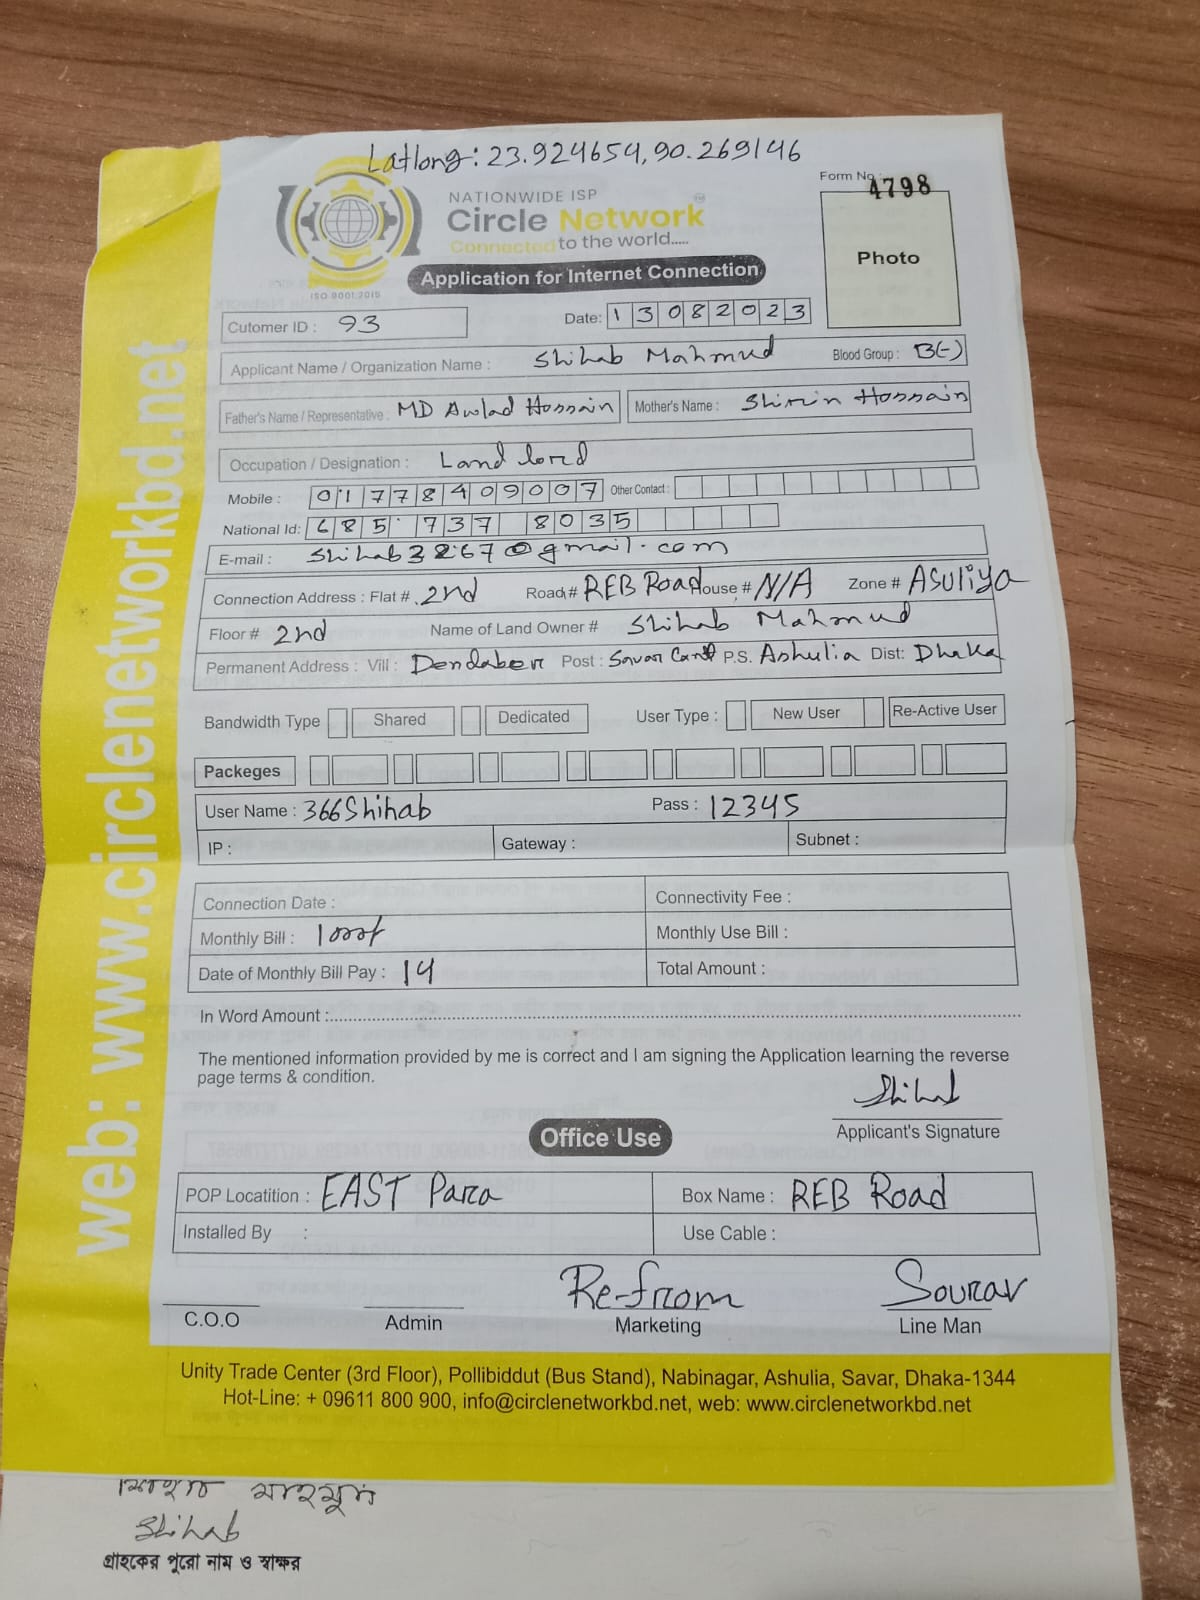 Latlong: 23.924654, 90.269146
Form No.: 4798
NATIONWIDE ISP
Circle Network
Connected to the world.....
ISO 9001:2015
Application for Internet Connection
Photo
Cutomer ID : 93
Date: 13082023
Applicant Name / Organization Name : Shihab Mahmud Blood Group : B(-)
Father's Name / Representative : MD Awlad Hossain Mother's Name : Shirin Hossain
Occupation / Designation : Land lord
Mobile : 01778409007 Other Contact :
National Id: 685 737 8035
E-mail : shihab3267@gmail.com
Connection Address : Flat # 2nd Road # REB Road House # N/A Zone # ASULiya
Floor # 2nd Name of Land Owner # Shihab Mahmud
Permanent Address : Vill : Dendaber Post : Savar Cant P.S. Ashulia Dist: Dhaka
Bandwidth Type Shared Dedicated User Type : New User Re-Active User
Packeges
User Name : 366Shihab Pass : 12345
IP : Gateway : Subnet :
Connection Date : Connectivity Fee :
Monthly Bill : Monthly Use Bill :
Date of Monthly Bill Pay : 14 Total Amount :
In Word Amount :
The mentioned information provided by me is correct and I am signing the Application learning the reverse
page terms & condition.
Shihab
Applicant's Signature
Office Use
POP Locatition : EAST Para Box Name : REB Road
Installed By : Use Cable :
Re-from Sourav
C.O.O Admin Marketing Line Man
Unity Trade Center (3rd Floor), Pollibiddut (Bus Stand), Nabinagar, Ashulia, Savar, Dhaka-1344
Hot-Line: + 09611 800 900, info@circlenetworkbd.net, web: www.circlenetworkbd.net
web: www.circlenetworkbd.net
শিহাব মাহমুদ
Shihab
গ্রাহকের পুরো নাম ও স্বাক্ষর